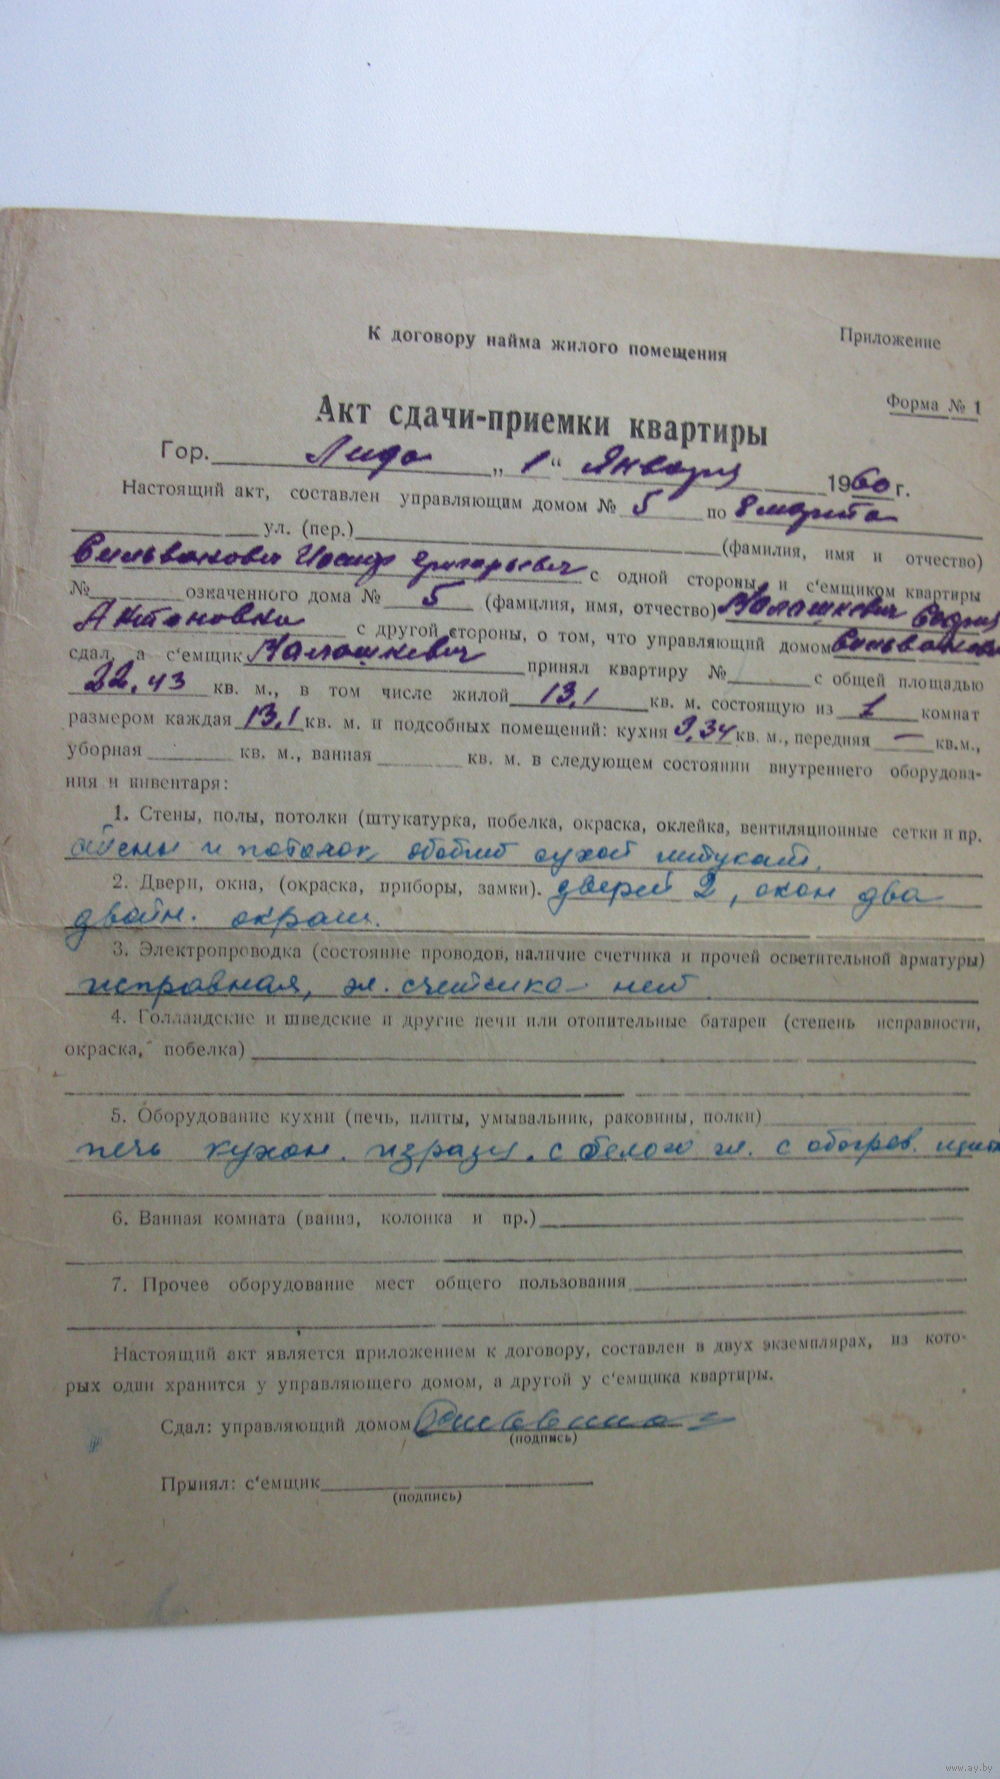 К договору найма жилого помещения
Приложение
Форма № 1
Акт сдачи-приемки квартиры
Гор. Лида „ 1 “ Января 1960 г.
Настоящий акт, составлен управляющим домом № 5 по 8 марта
ул. (пер.) (фамилия, имя и отчество)
Сильванович Иосиф Григорьевич с одной стороны и с‘емщиком квартиры
№ означенного дома № 5 (фамилия, имя, отчество) Малашкевич София
Антоновна с другой стороны, о том, что управляющий домом
сдал, а с‘емщик Малашкевич принял квартиру № с общей площадью
22,43 кв. м., в том числе жилой 13,1 кв. м. состоящую из 1 комнат
размером каждая 13,1 кв. м. и подсобных помещений: кухня 9,34 кв. м., передняя — кв.м.,
уборная кв. м., ванная кв. м. в следующем состоянии внутреннего оборудова-
ния и инвентаря:
1. Стены, полы, потолки (штукатурка, побелка, окраска, оклейка, вентиляционные сетки и пр.
стены и потолок обобит сухой штукат.
2. Двери, окна, (окраска, приборы, замки). дверей 2, окон два
двойн. окраш.
3. Электропроводка (состояние проводов, наличие счетчика и прочей осветительной арматуры)
исправная, эл. счетчика – нет
4. Голландские и шведские и другие печи или отопительные батареи (степень исправности,
окраска, побелка)
5. Оборудование кухни (печь, плиты, умывальник, раковины, полки)
печь кухон. изразц. с белой гл. с обогрев. щитк
6. Ванная комната (ванна, колонка и пр.)
7. Прочее оборудование мест общего пользования
Настоящий акт является приложением к договору, составлен в двух экземплярах, из кото-
рых один хранится у управляющего домом, а другой у с‘емщика квартиры.
Сдал: управляющий домом
(подпись)
Принял: с‘емщик
(подпись)
www.ay.by